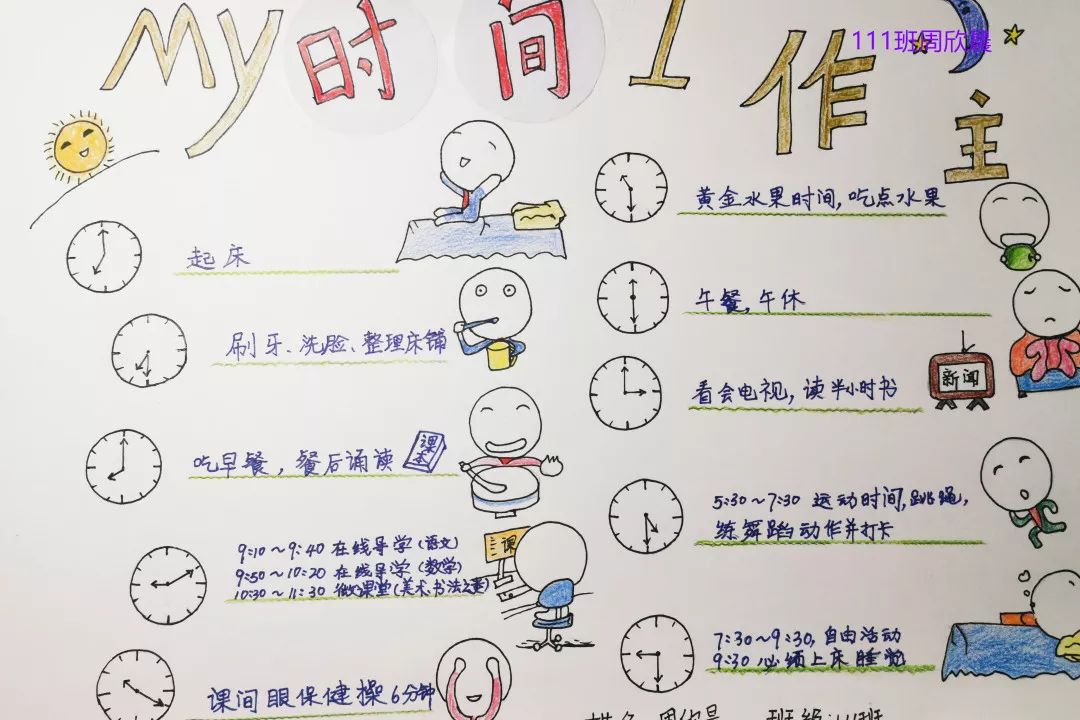 My时间I作主
111班周欣晨
起床
刷牙、洗脸、整理床铺
吃早餐，餐后诵读
课本
9:10～9:40 在线导学(语文)
9:50～10:20 在线导学(数学)
10:30～11:30 微课堂(美术、书法之类)
课
课间眼保健操6分钟
黄金水果时间,吃点水果
午餐,午休
看会电视,读半小时书
新闻
5:30～7:30 运动时间,跳绳,
练舞蹈动作并打卡
7:30～9:30,自由活动
9:30 必须上床睡觉